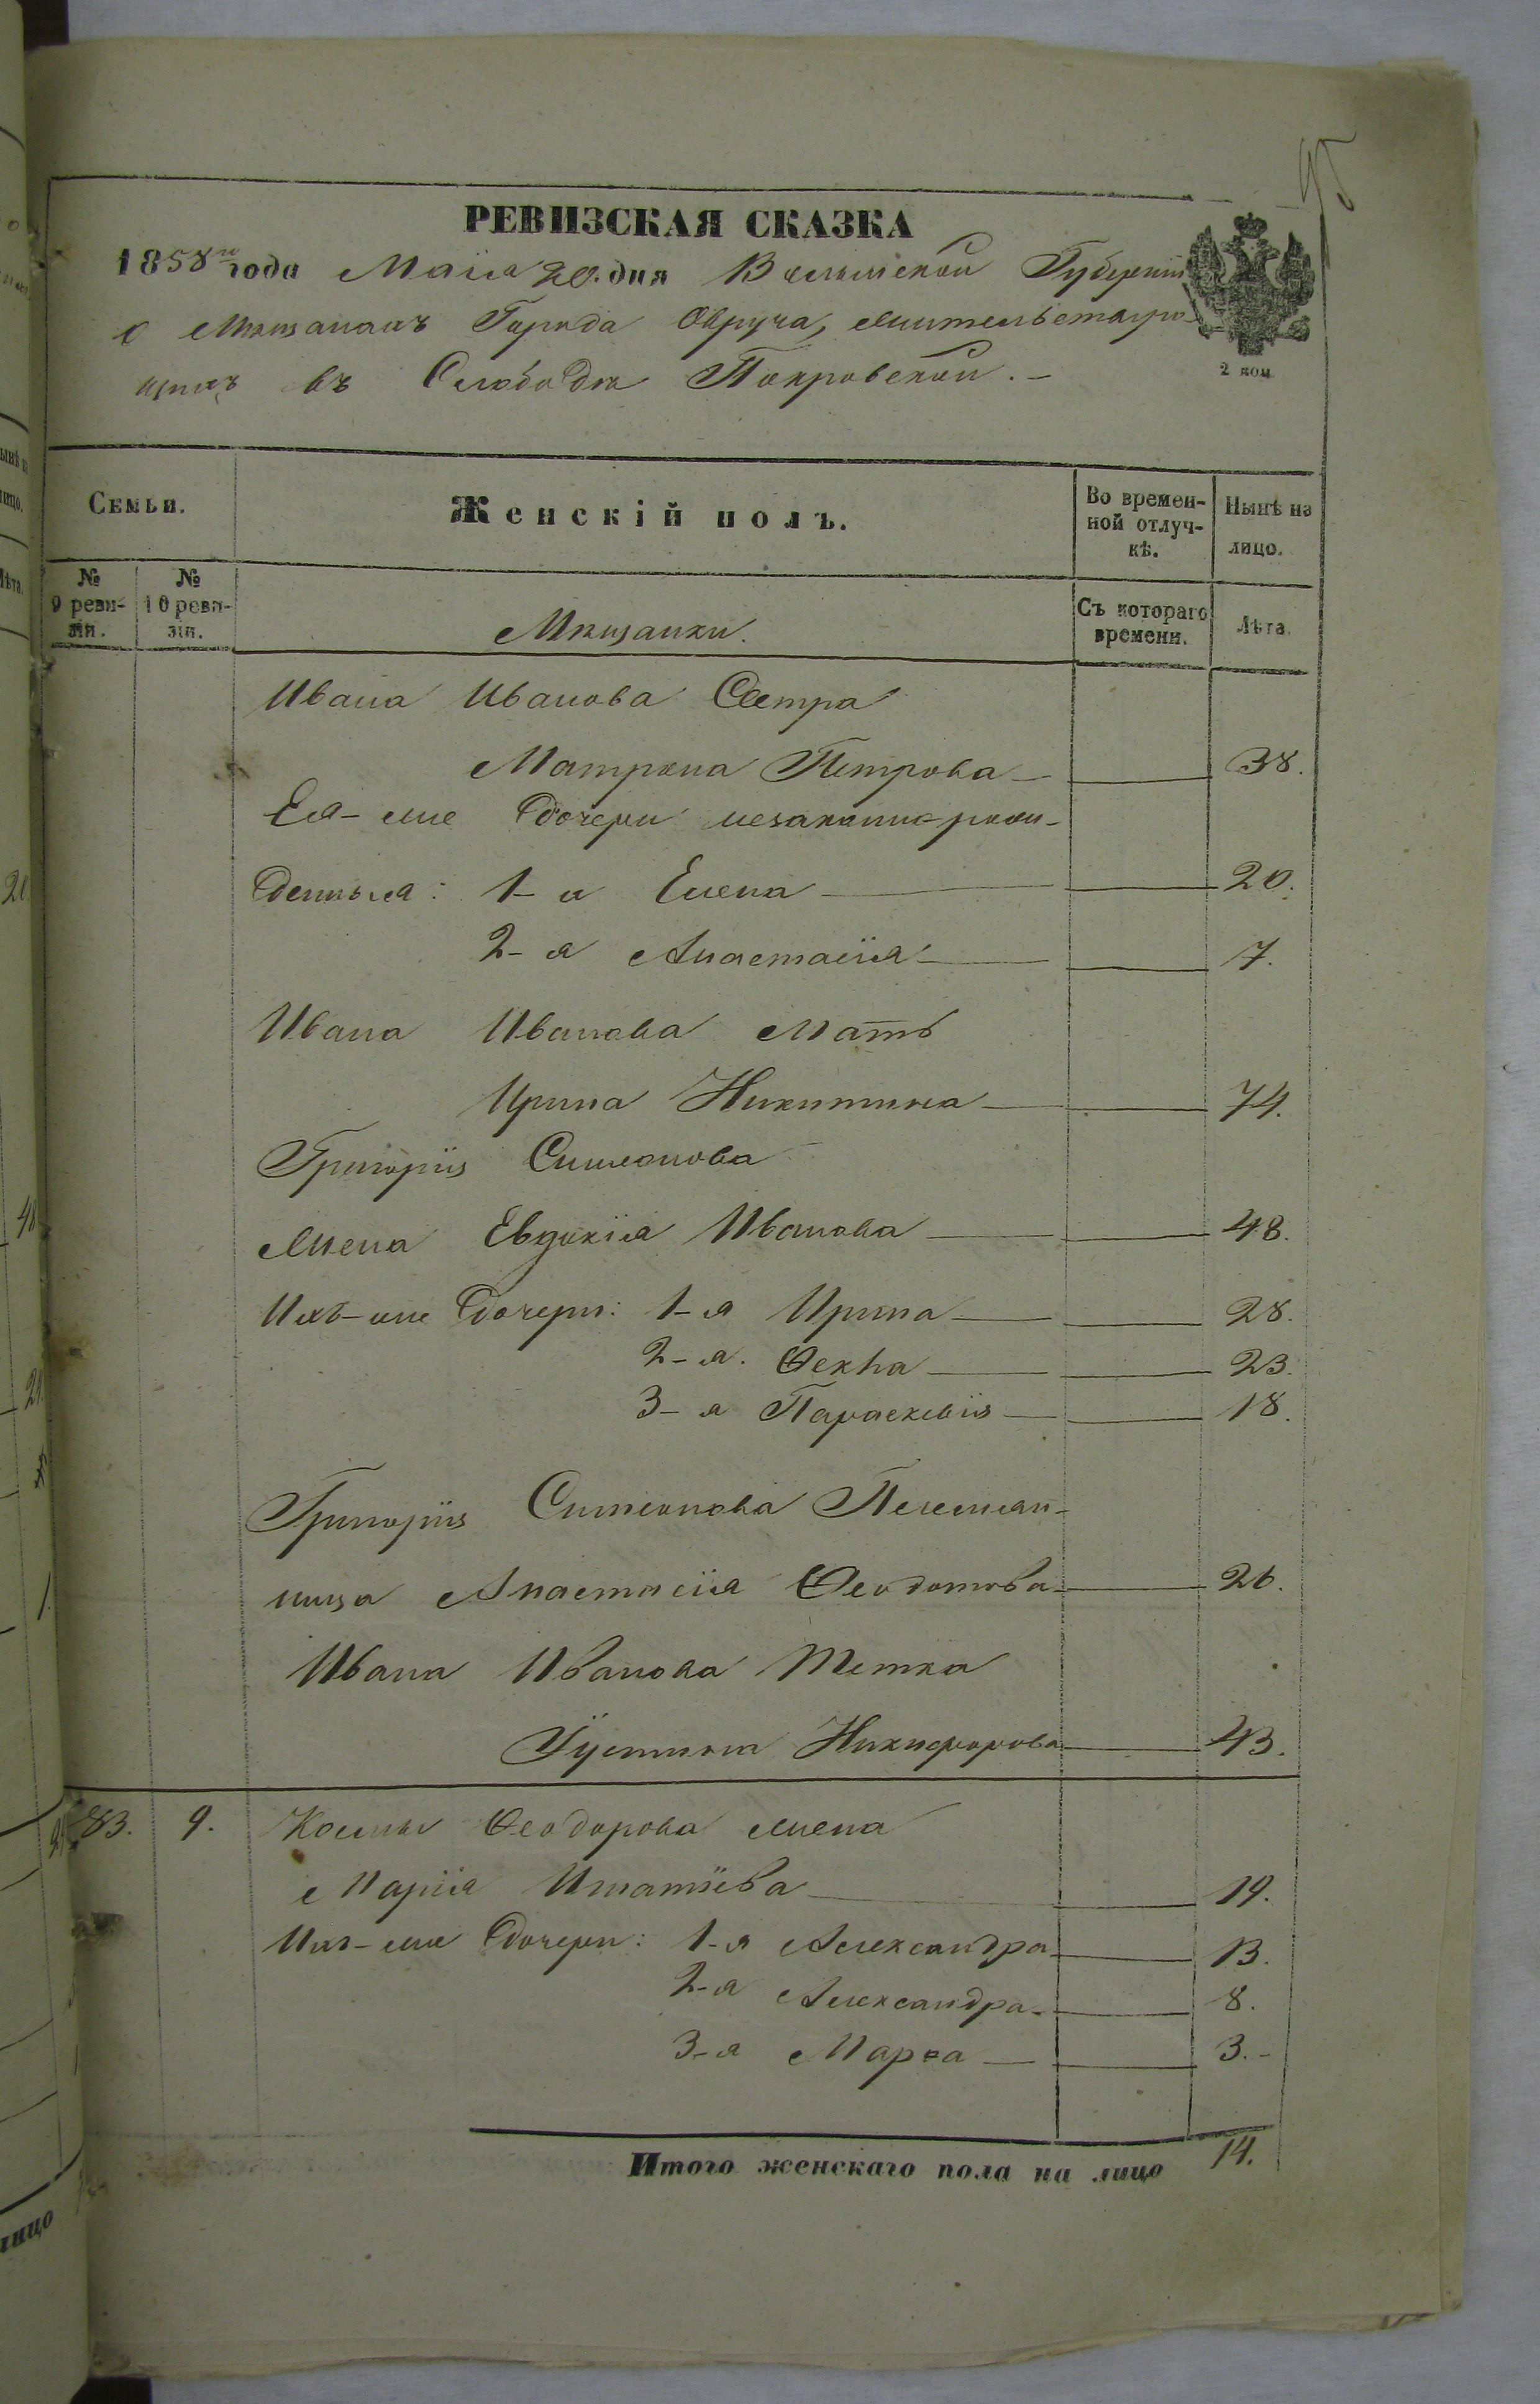 95
РЕВИЗСКАЯ СКАЗКА
1858го года Маія 20. дня Волынской Губерніи
о Мѣщанахъ Города Овруча, жительствую-
щихъ въ Слободѣ Покровской. -
2 коп
Семьи.
Женскій полъ.
Во времен-
ной отлуч-
кѣ.
Нынѣ на
лицо.
№
9 реви-
зіи.
№
10 реви-
зіи.
Мѣщанки.
Съ котораго
времени.
Лѣта.
Ивана Иванова Сестра
Матрона Петрова 38.
Ея-же дочери незаконно рож-
денныя: 1-я Елена 20.
2-я Анастасія 7.
Ивана Иванова Мать
Ирина Никитина 74.
Григорія Симеонова
Жена Евдокія Иванова 48.
Ихъ-же дочери: 1-я Ирина 28.
2-я. Ѳекла 23.
3-я Параскевія 18.
Григорія Симеонова Племян-
ница Анастасія Ѳеодотова 26.
Ивана Иванова Тетка
Іустина Никифорова 43.
83. 9. Космы Ѳеодорова жена
Марія Игнатіева 19.
Ихъ-же дочери: 1-я Александра 13.
2-я Александра 8.
3-я Марѳа 3.-
Итого женскаго пола на лицо 14.